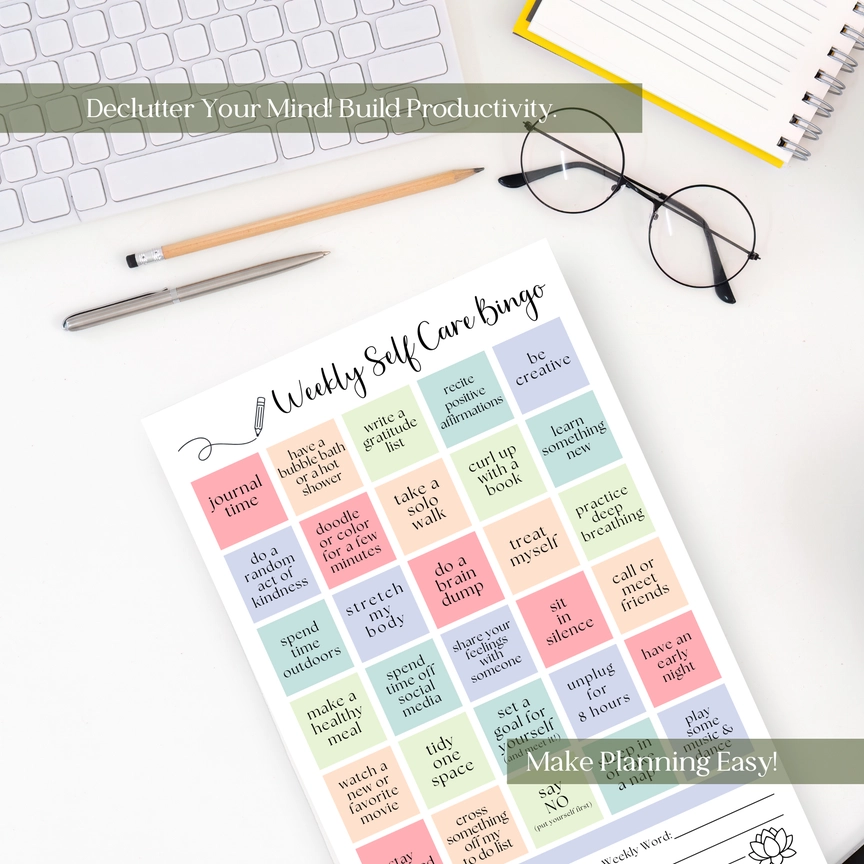 Declutter Your Mind! Build Productivity.
Weekly Self Care Bingo
journal
time
have a
bubble bath
or a hot
shower
write a
gratitude
list
recite
positive
affirmations
be
creative
do a
random
act of
kindness
doodle
or color
for a few
minutes
take a
solo
walk
curl up
with a
book
learn
something
new
spend
time
outdoors
stretch
my
body
do a
brain
dump
treat
myself
practice
deep
breathing
make a
healthy
meal
spend
time off
social
media
share your
feelings
with
someone
sit
in
silence
call or
meet
friends
watch a
new or
favorite
movie
tidy
one
space
set a
goal for
yourself
(and meet it!)
unplug
for
8 hours
have an
early
night
stay
cross
something
off my
to do list
say
NO
(put yourself first)
in
a nap
play
some
music &
dance
Make Planning Easy!
Weekly Word: